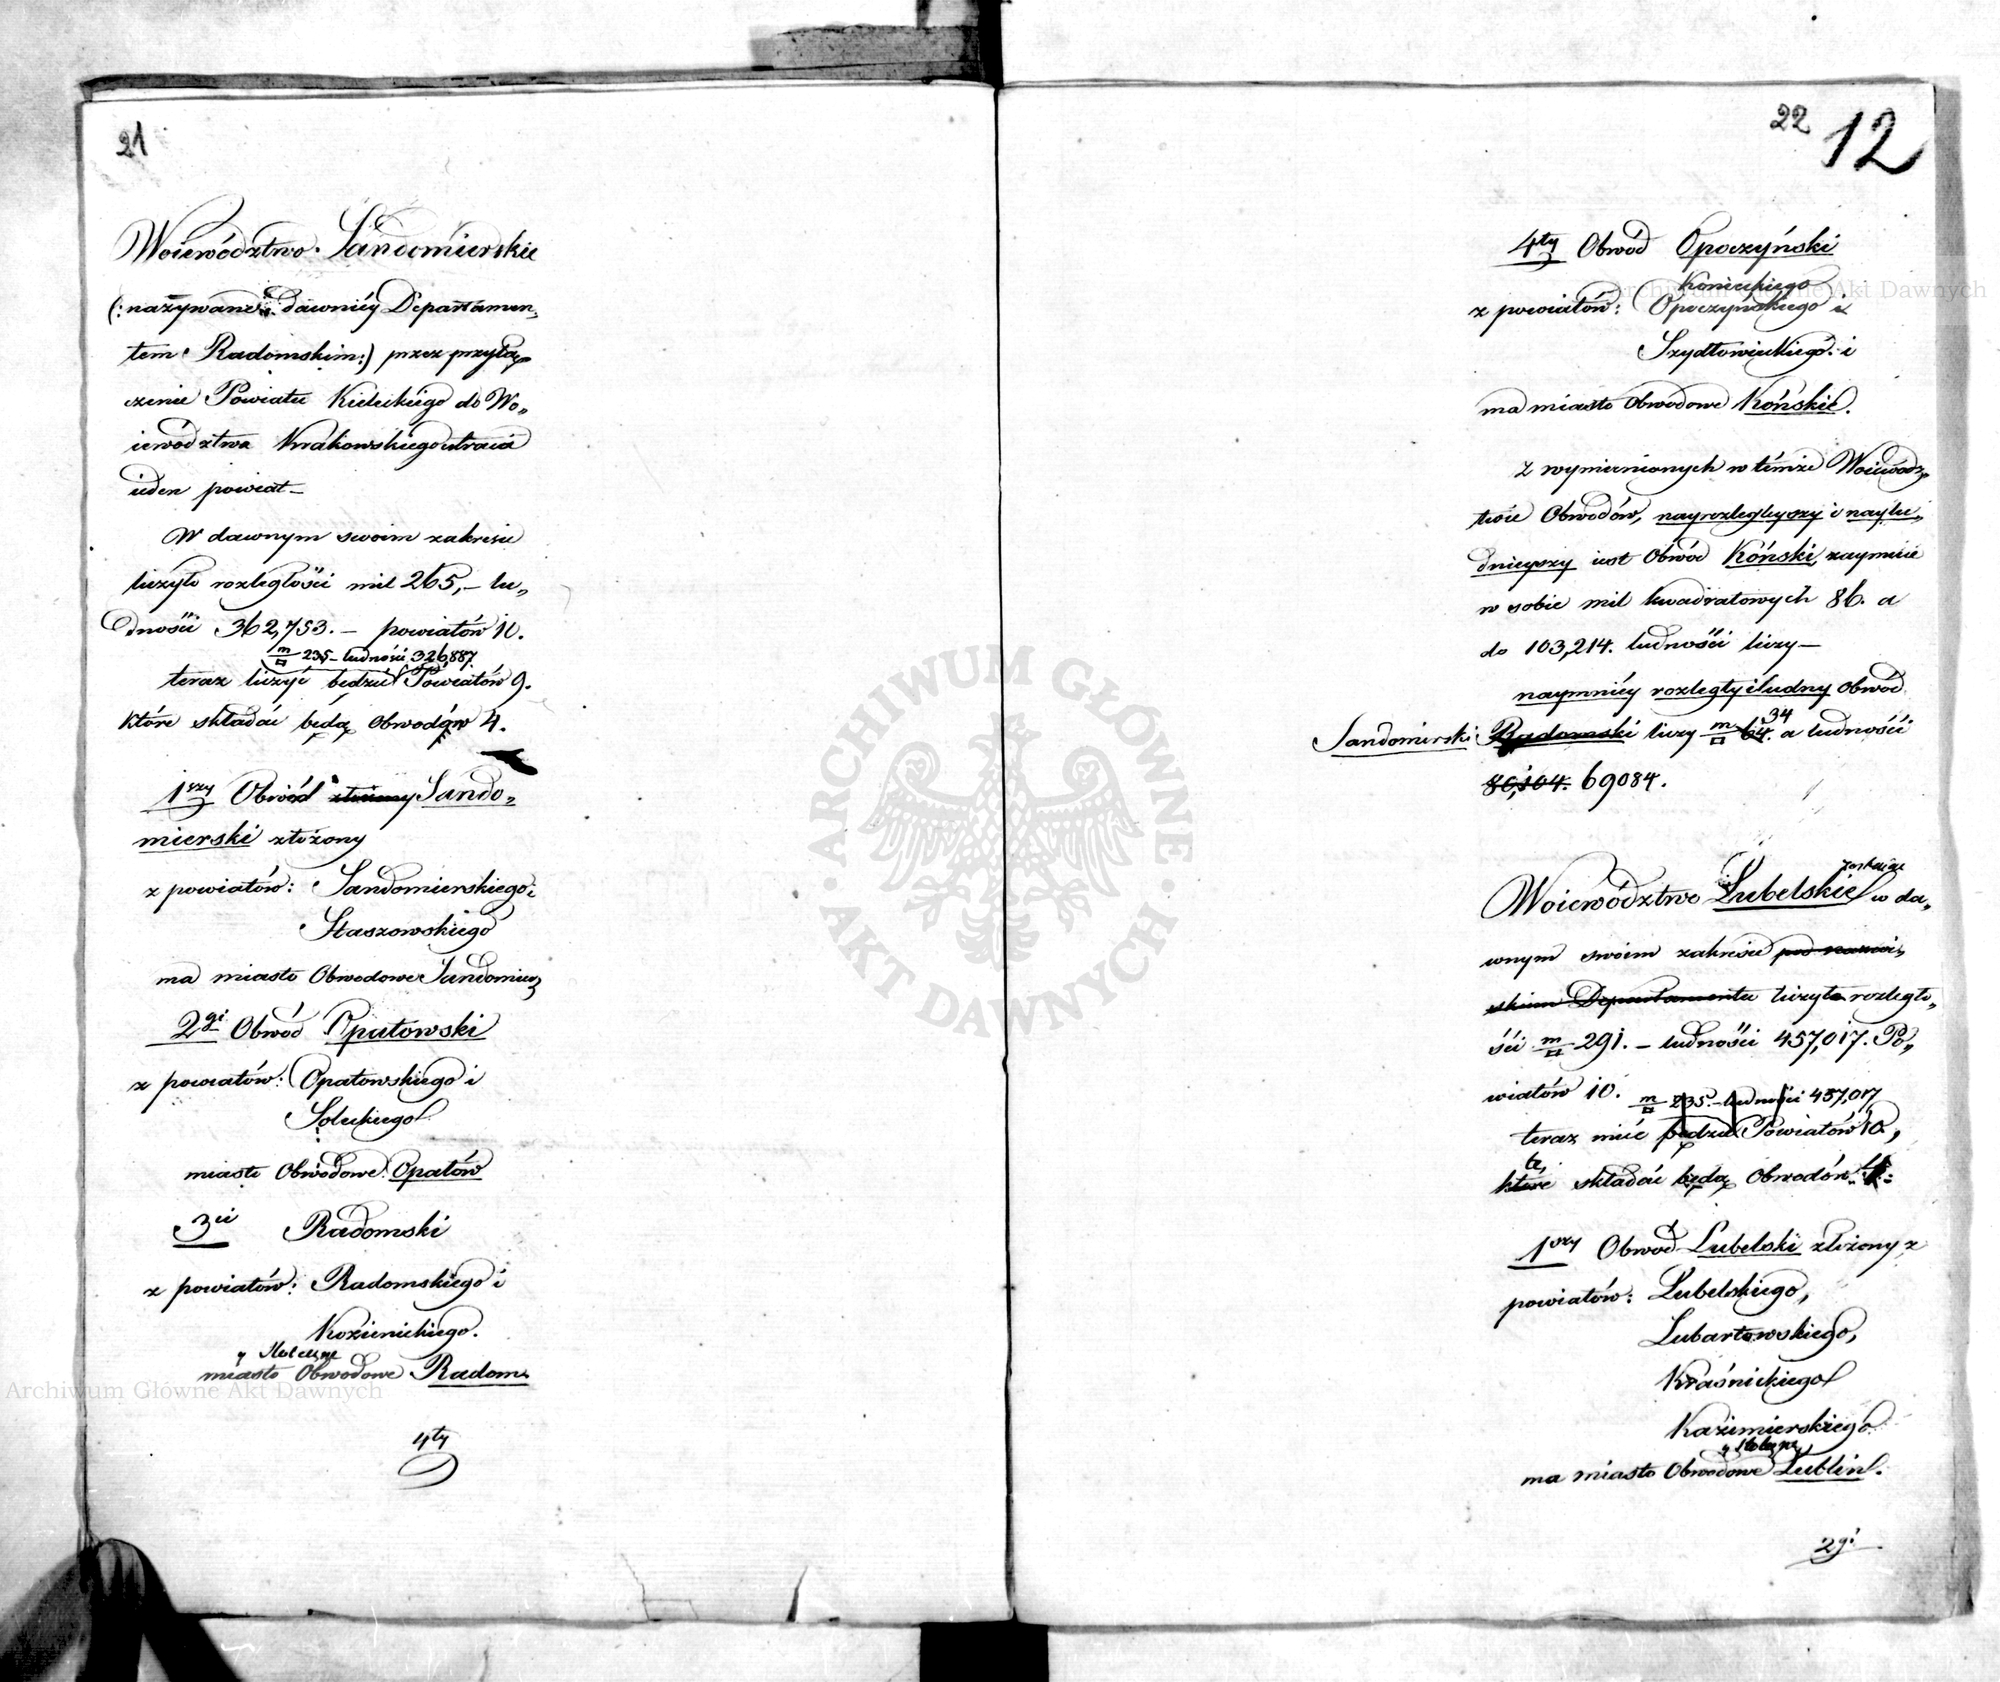 21
Woiewództwo Sandomierskie
(: nazywane dawniéy Departamen„
tem Radomskim :) przez przyłą„
czenie Powiatu Kieleckiego do Wo„
iewództwa Krakowskiego utraca
ieden powiat —
W dawnym swoim zakresie
liczyło rozległości mil 265, — lu„
dności 362,753. — powiatów 10.
m/□ 235 — ludności 326,887.
teraz liczyć będzie Powiatów 9.
które składać będą Obwodów 4.
1szy Obwód złożony Sando„
mierski złożony
z powiatów: Sandomierskiego i
Staszowskiego
ma miasto Obwodowe Sandomierz
2gi Obwód Opatowski
z powiatów: Opatowskiego i
Soleckiego
miasto Obwodowe Opatów
3ci Radomski
z powiatów: Radomskiego i
Kozienickiego.
y Stołeczne
miasto Obwodowe Radom
4ty
22 12
4ty Obwód Opoczyński
Konieckiego
z powiatów: Opoczyńskiego i
Szydłowieckiego i
ma miasto Obwodowe Kóńskie.
Z wymienionych w témże Woiewódz„
twie Obwodów, nayrozlegleyszy i naylu„
dnieyszy iest Obwód Kóński, zaymuie
w sobie mil kwadratowych 86. a
do 103,214. ludności liczy —
naymniéy rozległy i ludny Obwód
34
Sandomirski Radomski liczy m/□ 64. a ludności
80,104. 69084.
zostaiąc
Woiewództwo Lubelskie w da„
wnym swoim zakresie pod nazwi„
skiem Departamentu liczyło rozległo„
ści m/□ 291. — ludności 457,017. Po„
wiatów 10.
m/□ 235. — ludności 457,017
teraz mieć będzie Powiatów 10.,
te,
które składać będą Obwodów 4.:
1szy Obwód Lubelski złożony z
powiatów: Lubelskiego,
Lubartowskiego,
Kraśnickiego
Kazimierskiego
y Stołeczne
ma miasto Obwodowe Lublin.
2gi
ARCHIWUM GŁÓWNE
· AKT DAWNYCH ·
Archiwum Główne Akt Dawnych
Archiwum Główne Akt Dawnych